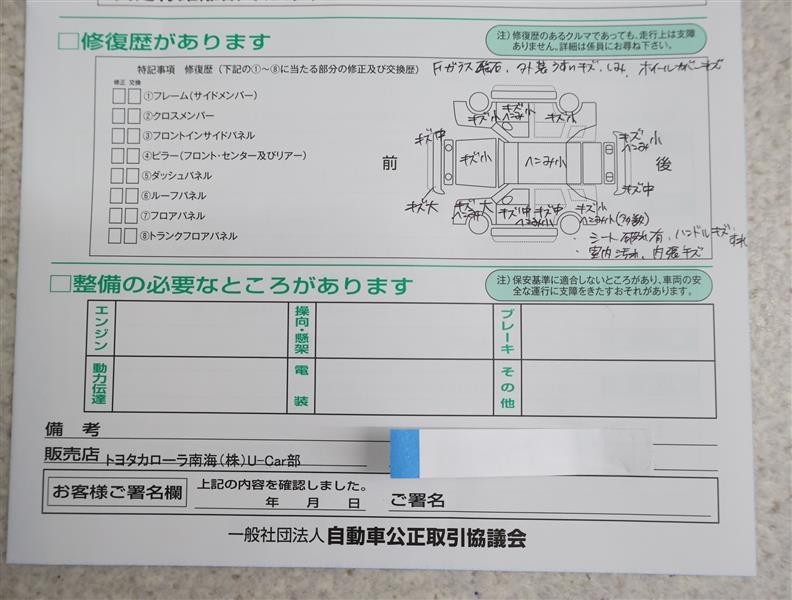 □修復歴があります
注）修復歴のあるクルマであっても、走行上は支障
ありません。詳細は係員にお尋ね下さい。
特記事項 修復歴（下記の①〜⑧に当たる部分の修正及び交換歴）
Fガラス飛石、外装うすいキズ、しみ、ホイールカバーキズ
修正 交換
①フレーム（サイドメンバー）
②クロスメンバー
③フロントインサイドパネル
④ピラー（フロント・センター及びリアー）
⑤ダッシュパネル
⑥ルーフパネル
⑦フロアパネル
⑧トランクフロアパネル
前
後
キズ小
キズ小
ヘこみ小
キズ小
キズ中
キズ小
ヘこみ小
キズ小
ヘこみ小
キズ中
キズ大
キズ大
ヘこみ大
キズ中
キズ中
ヘこみ小
キズ小
ヘこみ小(多数)
・シート破れ有、ハンドルキズ すれ
・室内汚れ、内張キズ
□整備の必要なところがあります
注）保安基準に適合しないところがあり、車両の安
全な運行に支障をきたすおそれがあります。
エンジン
操向・懸架
ブレーキ
動力伝達
電装
その他
備考
販売店 トヨタカローラ南海（株）U-Car部
お客様ご署名欄
上記の内容を確認しました。
年 月 日
ご署名
一般社団法人 自動車公正取引協議会